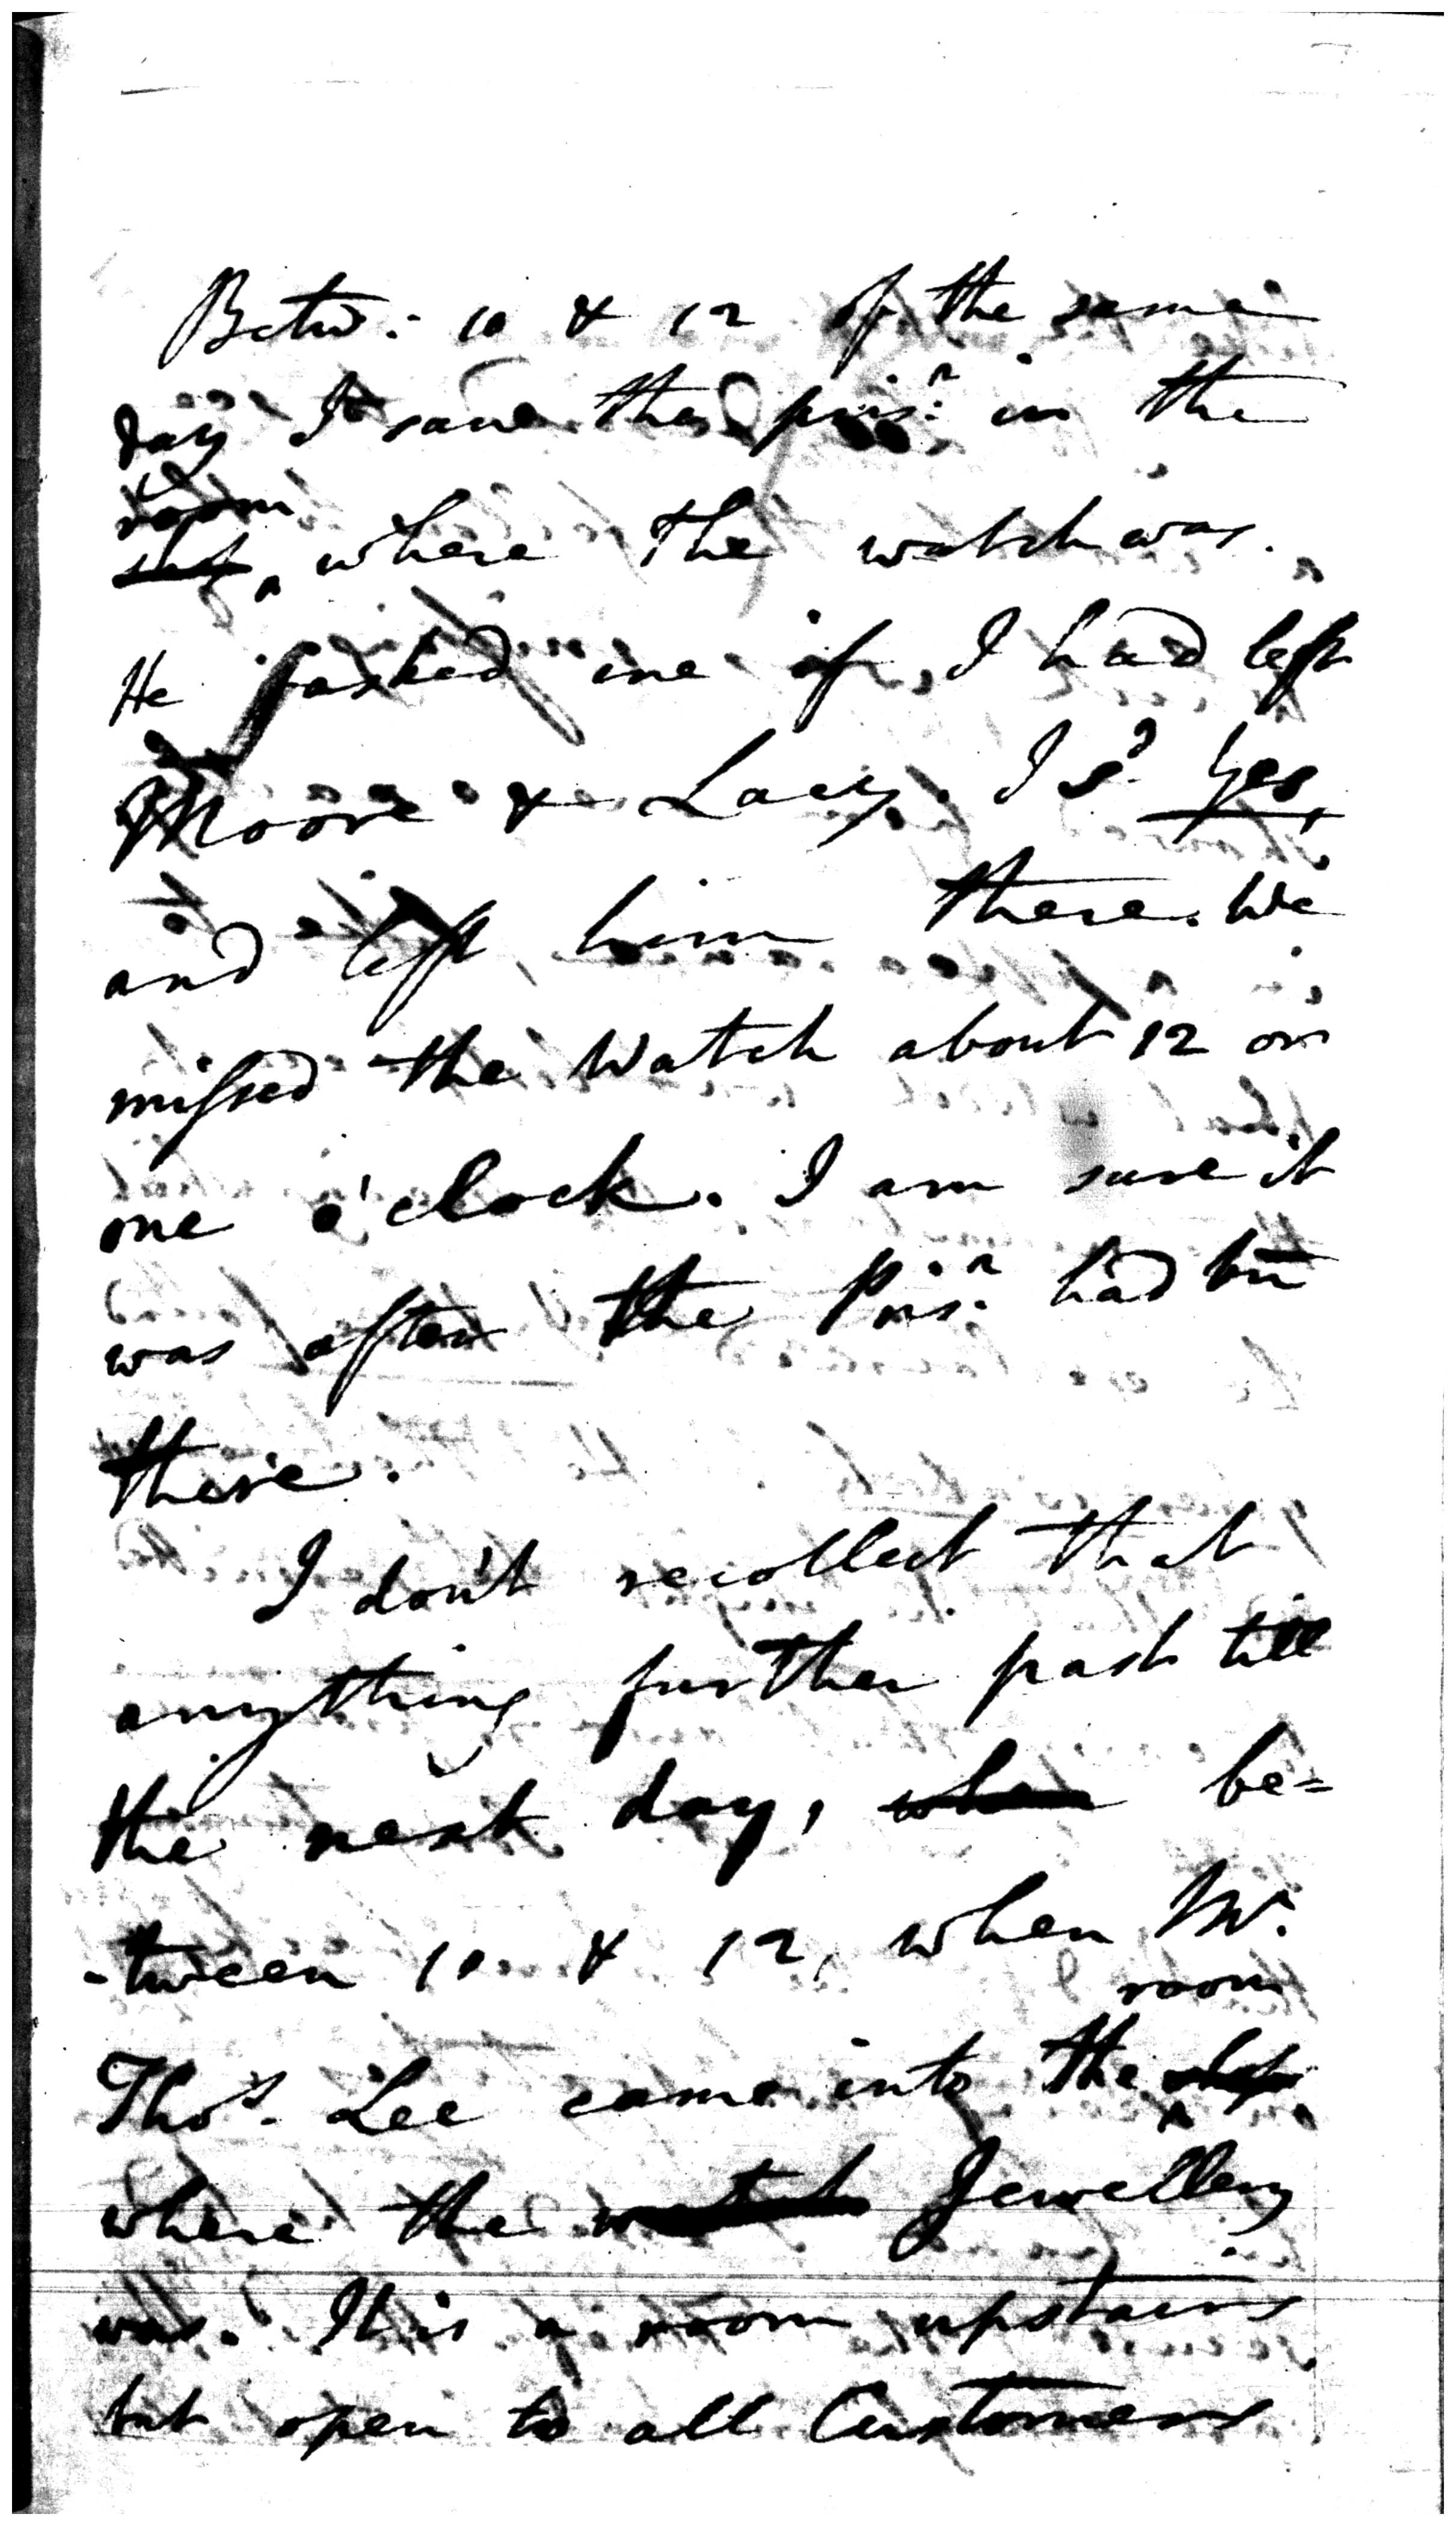 Betw: 10 & 12 of the same
day I saw the pris:r in the
room
shop ^ where the watch was.
He asked me if I had left
Moore & Lacy. I sd. Yes,
and left him there. We
missed the Watch about 12 or
one o'clock. I am sure it
was after the Pris:r had bn
there.
I don't recollect that
anything further past till
the next day, when be=
-tween 10 & 12, when Mr.
room
Thos. Lee came into the ^ shop
where the watch Jewellery
was. It is a room upstairs
but open to all Customers